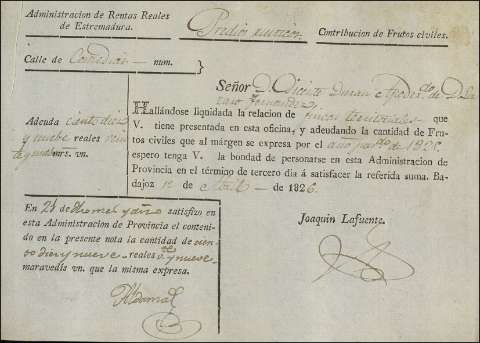 Administracion de Rentas Reales
de Estremadura.
Predios rusticos
Contribucion de Frutos civiles.
Calle de Comedias — num.
Señor D. Vicente Duran Apoder.do de D. La
zaro Fernandez
Hallándose liquidada la relacion de fincas territoriales que
V. tiene presentada en esta oficina, y adeudando la cantidad de Fru-
tos civiles que al márgen se expresa por el año pas.do de 1825,
espero tenga V. la bondad de personarse en esta Administracion de
Provincia en el término de tercero dia á satisfacer la referida suma. Bada-
joz 12 de Abril — de 1826.
Adeuda ciento diez
y nueve reales
mrs. vn.
Joaquin Lafuente.
En 25 de dho mes y año satisfizo en
esta Administracion de Provincia el contenido
en la presente nota la cantidad de cien
to diez y nueve reales y nueve
maravedis vn. que la misma expresa.